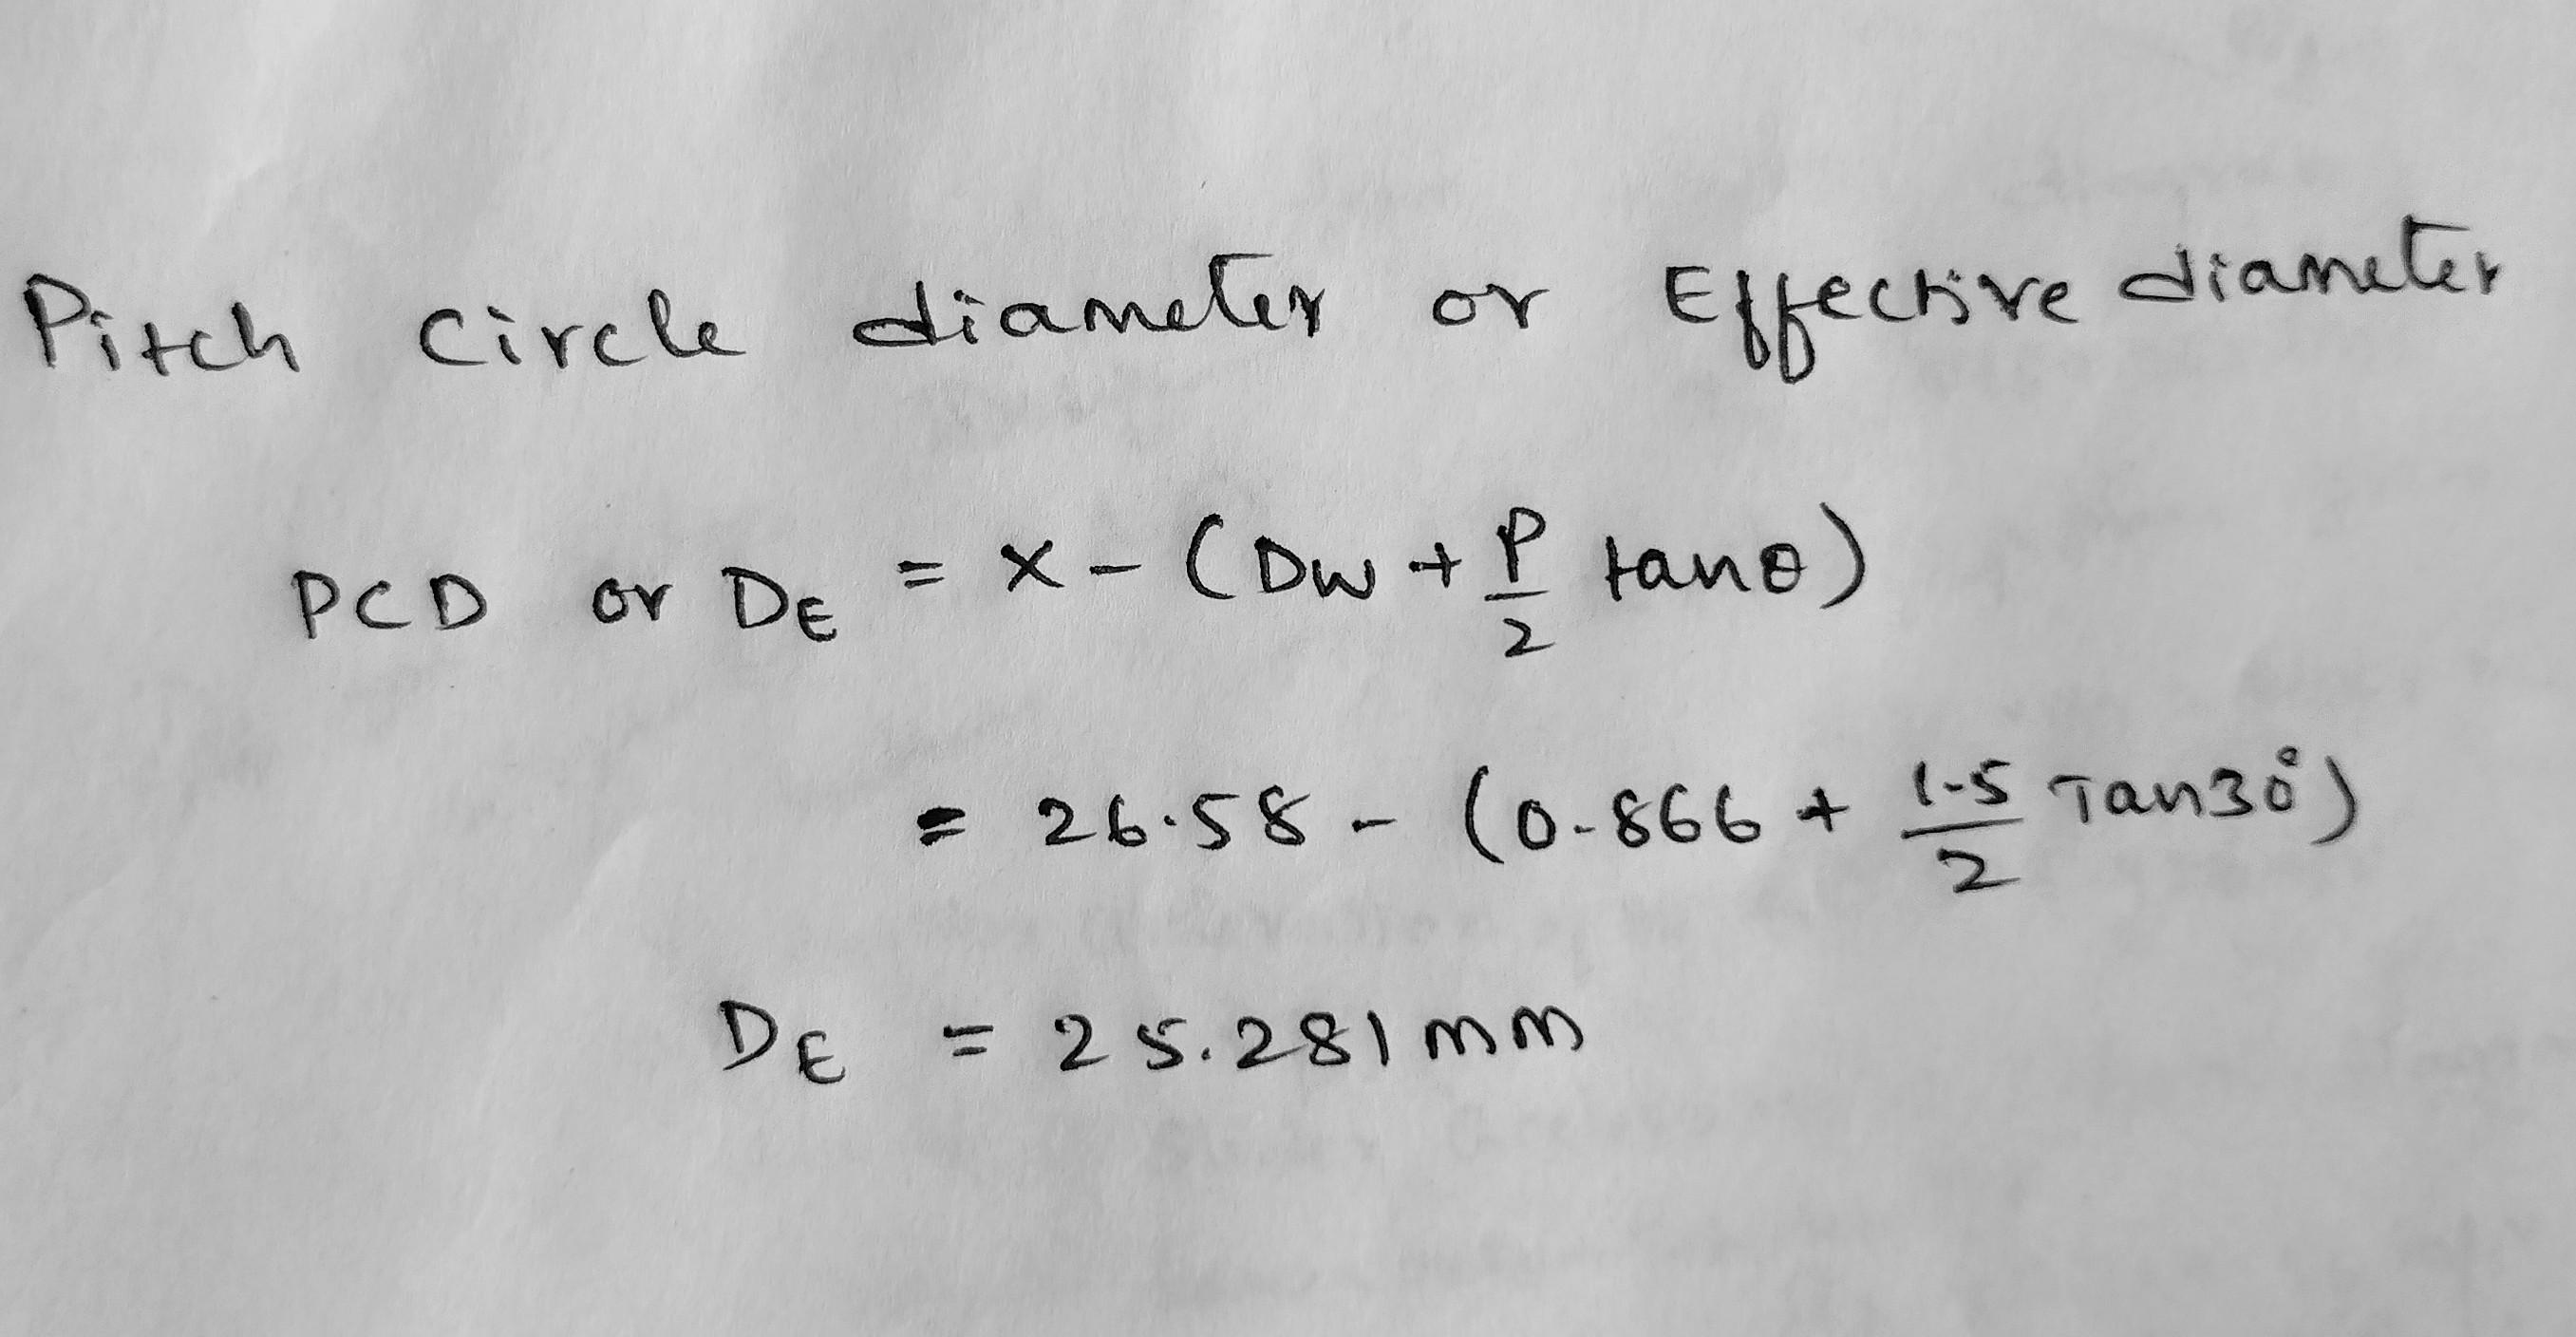 Pitch Circle diameter or Effective diameter
PCD or DE = x - (Dw + P/2 tanθ)
= 26.58 - (0.866 + 1.5/2 Tan30°)
DE = 25.281 mm